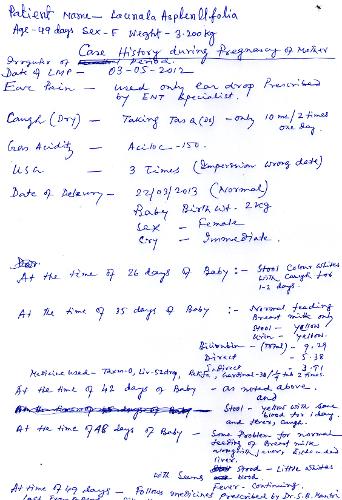 Patient Name - Launala Asphenllfolia
Age - 49 days Sex - F Weight - 3.200kg
Case History during Pregnancy of Mother
Irregular of Period.
Date of LMP - 03-05-2012
Eare Pain - used only ear drop Prescribed
by ENT Specialist.
Caugh (Dry) - Taking Tasq(DS) - only 10 ml/2 times
one day.
Gas Acidity - Aciloc-150.
USG - 3 Times (Impression wrong date)
Date of Delevery - 22/03/2013 (Normal)
Baby Birth wt. 2kg
Sex - Female
Cry - Immediate.
At the time of 26 days of Baby :- Stool Colour whites
with Caugh for
1-2 days.
At the time of 35 days of Baby :- Normal feeding
Breast milk only
Stool - yellow
Urin - yellow.
Bilirubin - (Total) - 9.29
Direct - 5.38
In Direct 3.91
Medicine used - Taxim-O, Liv-52drop, 2 times.
At the time of 42 days of Baby - as noted above.
and
Stool - yellow with some
blood for 1 day.
and fever, Caugh.
At the time of 48 days of Baby - Some Problem for normal
feeding of Breast milk
alongwith fever,
liver
with Seums Stool - Little whites
Fever - Continuing.
At time of 49 days - Follows medicines Prescribed by Dr. S.K.